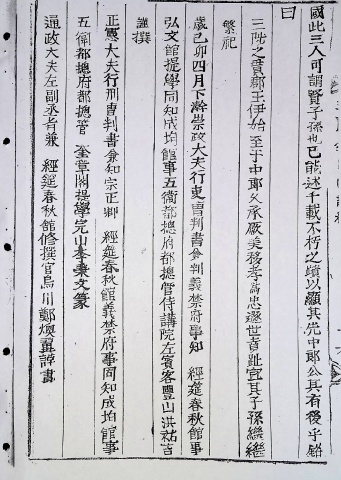 國此三人可謂賢子孫也已能述千載不朽之蹟以顯其先中郞公其有後乎銘
曰
三陟之賈鄕王伊始至于中郞久承厥美移孝爲忠遯世韋趾宜其子孫繩繩
繁祀
歲己卯四月下澣崇政大夫行吏曹判書兼判義禁府事知　經筵春秋館事
弘文館提學同知成均館事五衛都摠府都摠管侍講院左賓客豐山洪祐吉
謹撰
正憲大夫行刑曹判書兼知宗正卿　經筵春秋館義禁府事同知成均館事
五衛都摠府都摠官　奎章閣提學完山李秉文篆
通政大夫左副丞旨兼　經筵春秋館修撰官烏川鄭煥翼謹書